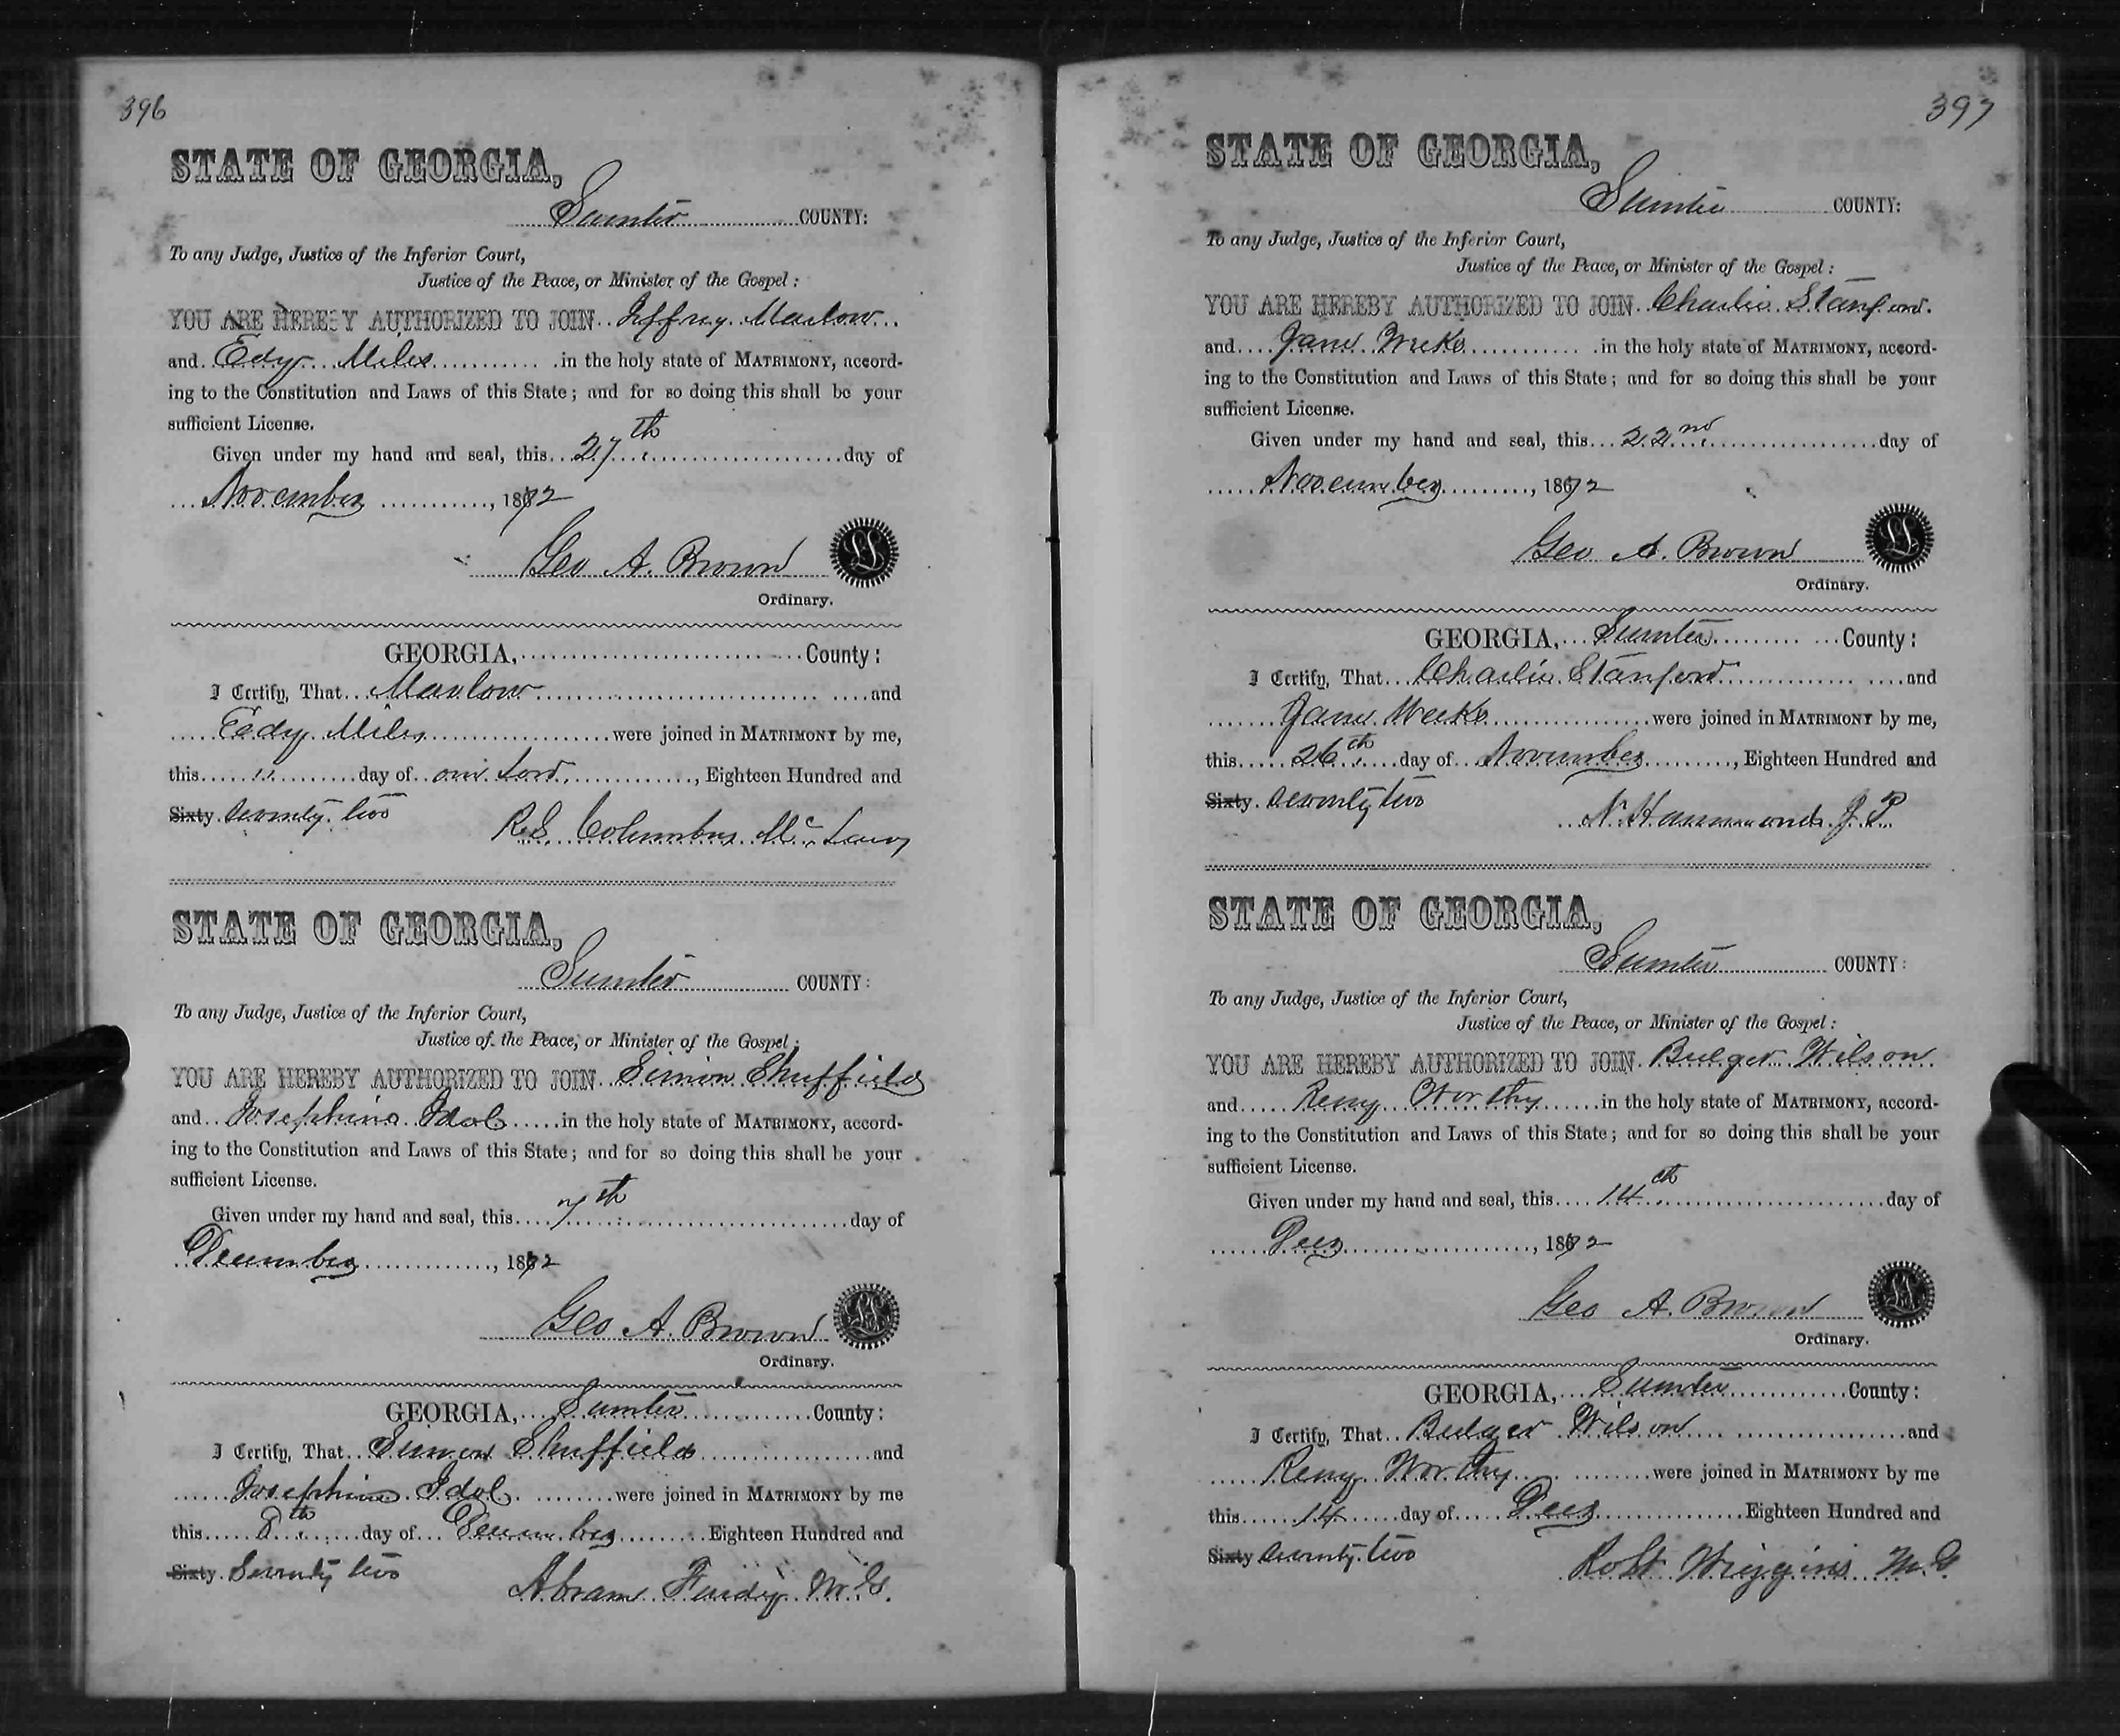 396
STATE OF GEORGIA,
Sumter COUNTY:
To any Judge, Justice of the Inferior Court,
Justice of the Peace, or Minister of the Gospel:
YOU ARE HEREBY AUTHORIZED TO JOIN Jeffrey Marlow
and Edy Miles in the holy state of MATRIMONY, accord-
ing to the Constitution and Laws of this State; and for so doing this shall be your
sufficient License.
Given under my hand and seal, this 27th day of
November, 1872
Geo A. Brown
Ordinary.
GEORGIA, County:
I Certify, That Marlow and
Eedy Miles were joined in MATRIMONY by me,
this 11 day of our Lord, Eighteen Hundred and
Sixty Seventy two
R.S. Columbus Mc
STATE OF GEORGIA,
Sumter COUNTY:
To any Judge, Justice of the Inferior Court,
Justice of the Peace, or Minister of the Gospel:
YOU ARE HEREBY AUTHORIZED TO JOIN Simon Shuffield
and Josephine Idol in the holy state of MATRIMONY, accord-
ing to the Constitution and Laws of this State; and for so doing this shall be your
sufficient License.
Given under my hand and seal, this 7th day of
December, 1872
Geo A. Brown
Ordinary.
GEORGIA, Sumter County:
I Certify, That Simon Shuffield and
Josephine Idol were joined in MATRIMONY by me
this 8th day of December Eighteen Hundred and
Sixty Seventy two
Abram M.G.
397
STATE OF GEORGIA,
Sumter COUNTY:
To any Judge, Justice of the Inferior Court,
Justice of the Peace, or Minister of the Gospel:
YOU ARE HEREBY AUTHORIZED TO JOIN Charlie Stanford
and Jane Weeks in the holy state of MATRIMONY, accord-
ing to the Constitution and Laws of this State; and for so doing this shall be your
sufficient License.
Given under my hand and seal, this 22nd day of
November, 1872
Geo A. Brown
Ordinary.
GEORGIA, Sumter County:
I Certify, That Charlie Stanford and
Jane Weeks were joined in MATRIMONY by me,
this 26th day of November, Eighteen Hundred and
Sixty Seventy two
N. Hammond J.P.
STATE OF GEORGIA,
Sumter COUNTY:
To any Judge, Justice of the Inferior Court,
Justice of the Peace, or Minister of the Gospel:
YOU ARE HEREBY AUTHORIZED TO JOIN Bulger Wilson
and Reny Worthy in the holy state of MATRIMONY, accord-
ing to the Constitution and Laws of this State; and for so doing this shall be your
sufficient License.
Given under my hand and seal, this 14th day of
Decr, 1872
Geo A. Brown
Ordinary.
GEORGIA, Sumter County:
I Certify, That Bulger Wilson and
Reny Worthy were joined in MATRIMONY by me
this 14 day of Decr Eighteen Hundred and
Sixty Seventy two
Robt Wiggins M.G